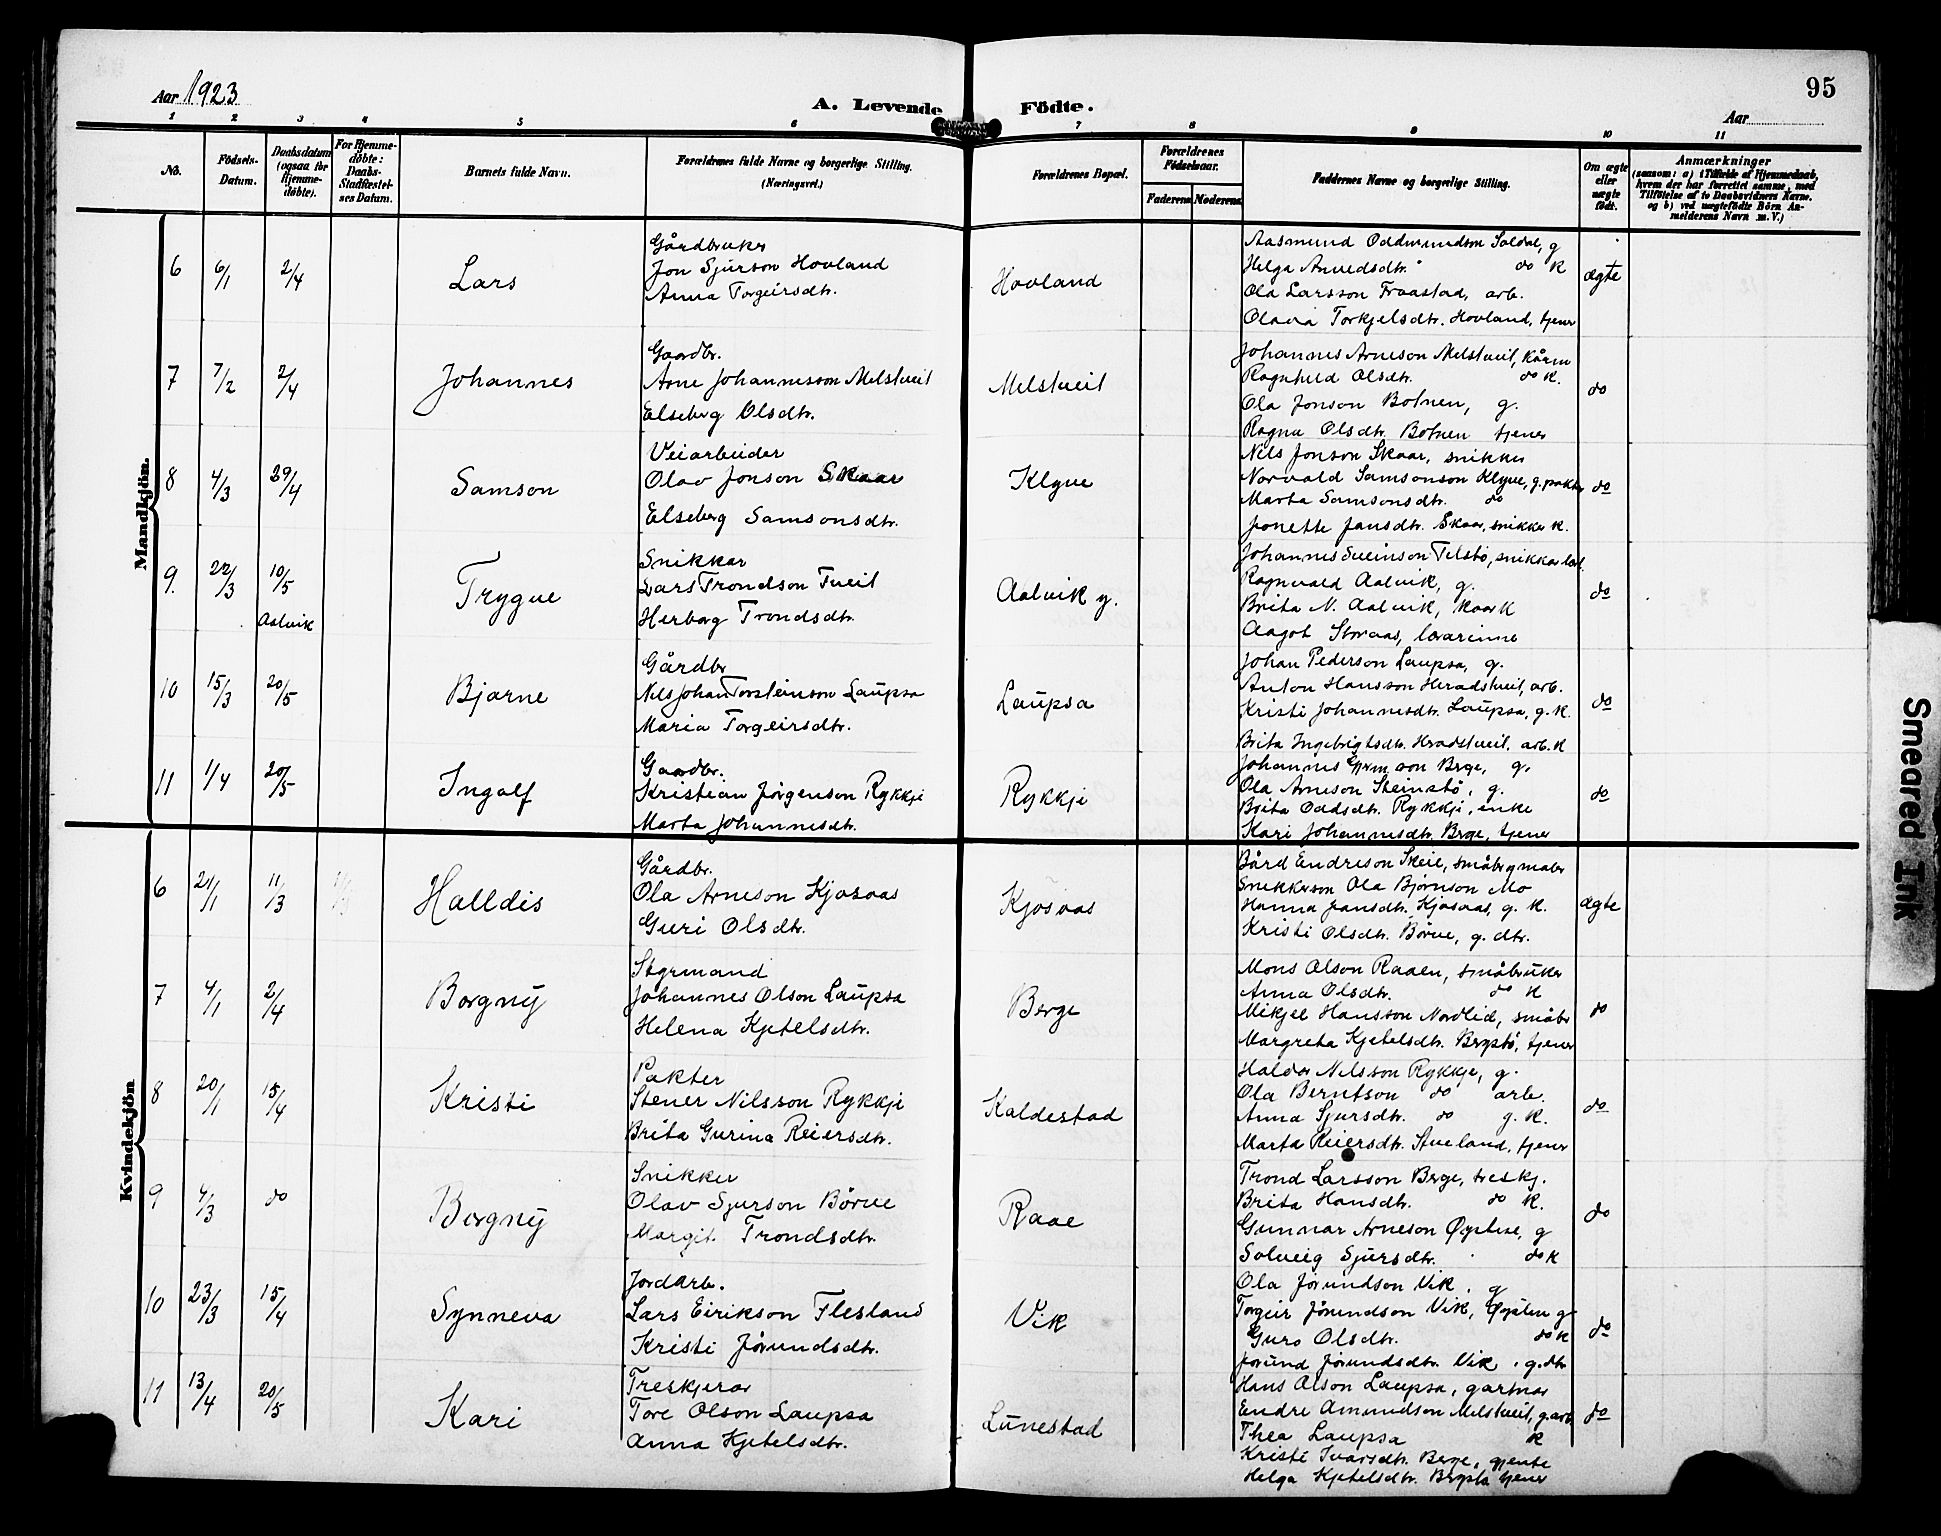 95
Aar 1923
A. Levende Födte.
Aar
1 2 3 4 5 6 7 8 9 10 11
No.
Födsels-Datum.
Daabsdatum (ogsaa for Hjemme-döbte).
For Hjemme-döbte: Daabs-Stadfæstel-ses Datum.
Barnets fulde Navn.
Forældrenes fulde Navne og borgerlige Stilling.
(Næringsvei.)
Forældrenes Bopæl.
Forældrenes Födselsaar.
Faderens Moderens
Faddernes Navne og borgerlige Stilling.
Om ægte eller uægte født.
Anmærkninger
(saasom: a) i Tilfælde af Hjemmedaab,
hvem der har forrettet samme, med
Tilföielse af to Daabsvidners Navne,
og b) ved uægtefödte Börn An-
melderens Navn m. V.)
Mandkjön.
6 6/1 2/4 Lars
Gårdbruker
Jon Sjurson Hovland
Anna Torgeirsdtr.
Hovland
Aasmund Oddmundson Soldal, g
Helga Arvedsdtr. do K
Ola Larsson Fraastad, arb.
Olava Torkjelsdtr. Hovland, tjener
ægte
7 7/2 2/4 Johannes
Gaardbr.
Arne Johannesson Melstveit
Elseberg Olsdtr.
Melstveit
Johannes Arneson Melstveit, kårm
Ragnhild Olsdtr. do K.
Ola Jonson Botnen, g.
Ragna Olsdtr. Botnen tjener
do
8 4/3 29/4 Samson
Veiarbeider
Olav Jonson Skaar
Elseberg Samsonsdtr.
Klyve
Nils Jonson Skaar, snikker
Norvald Samsonson Klyve, g. pakter
Marta Samsonsdtr. do
Jonette Jansdtr. Skaar, snikker K.
do
9. 22/3 10/5 Aalvik Trygve
Snikkar
Lars Trondson Tveit
Herborg Trondsdtr.
Aalvik y.
Johannes Sveinson Telstø, snikkar
Ragnvald Aalvik, g.
Brita N. Aalvik, kaar K
Aagot Storaas, lærarinne
do
10 15/3 20/5 Bjarne
Gårdbr
Nils Johan Torsteinson Laupsa
Maria Torgeirsdtr.
Laupsa
Johan Pederson Laupsa, g.
Anton Hansson Heradstveit, arb.
Kristi Johannesdtr. Laupsa, g. K.
Brita Ingebrigtsdtr. Hradstveit, arb. K
do
11 1/4 20/5 Ingolf
Gaardbr.
Kristian Jørgenson Rykkje
Marta Johannesdtr.
Rykkje
Johannes son Berge, g.
Ola Arneson Steinstø, g.
Brita Oddsdtr. Rykkje, enke
Kari Johannesdtr. Berge, tjener
do
Kvindekjön
6 21/1 11/3 Halldis
Gårdbr.
Ola Arneson Kjosaas
Guri Olsdtr.
Kjosaas
Bård Endreson Skeie, småbr
Snikkerson Ola Bjørnson Mo
Hanna Jansdtr. Kjosaas, g. K.
Kristi Olsdtr. Børve, g. dtr.
ægte
7 4/1 2/4 Borgny
Styrmand
Johannes Olson Laupsa
Helena Kjetelsdtr.
Berge
Mons Olson Raaen, småbruker
Anna Olsdtr. do K
Mikjel Hansson Nordlid, småbr
Margreta Kjetelsdtr. Bergstø, tjener
do
8 20/1 15/4 Kristi
Pakter
Stener Nilsson Rykkje
Brita Gurina Reiersdtr.
Kaldestad
Haldor Nilsson Rykkje, g.
Ola Berntson do arb.
Anna Sjursdtr. do g. K.
Marta Reiersdtr. Stueland, tjener
do
9 4/3 do Borgny
Snikker
Olav Sjurson Børve
Margit Trondsdtr.
Raae
Trond Larsson Berge, treskj.
Brita Hansdtr. do K.
Gunnar Arneson Øystese, g
Solveig Sjursdtr. do K
do
10 23/3 15/4 Synneva
Jordarb.
Lars Eirikson Flesland
Kristi Jørundsdtr.
Vik
Ola Jørundson Vik, g
Torgeir Jørundson Vik, g
Guro Olsdtr. do K
Jorund Jørundsdtr. Vik, g. dtr
do
11 13/4 20/5 Kari
Treskjerar
Tore Olson Laupsa
Anna Kjetelsdtr.
Lunestad
Hans Olson Laupsa, gartnar
Endre Amundson Melstveit, g. arb.
Thea Laupsa K
Kristi Ivarsdtr. Berge, gjente
Helga Kjetelsdtr. Bergstø tjener
do
Smeared Ink